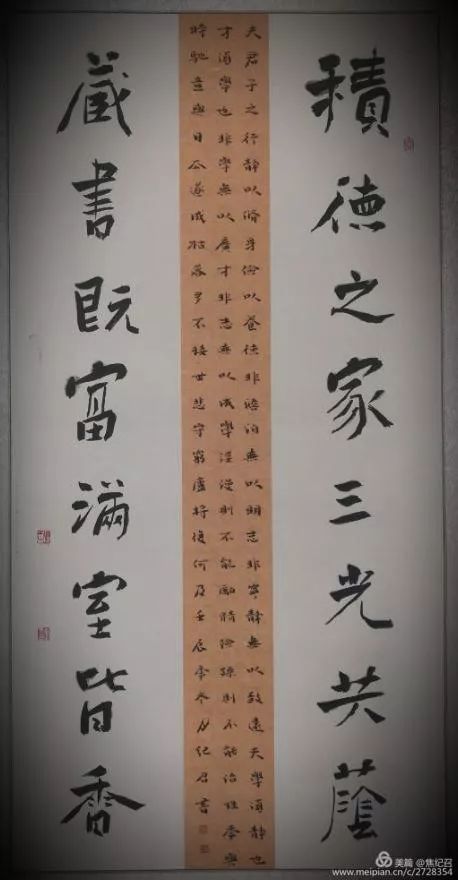 積德之家三光共蔭
夫君子之行靜以脩身儉以養德非澹泊無以明志非寧靜無以致遠夫學湏靜也
才湏學也非學無以廣才非志無以成學淫漫則不能勵精險躁則不能治性年與
時馳意與日去遂成枯落多不接世悲守窮廬將復何及壬辰年冬月纪召書
蔵書既富滿室皆香
美篇 @焦纪召
www.meipian.cn/c/2728354